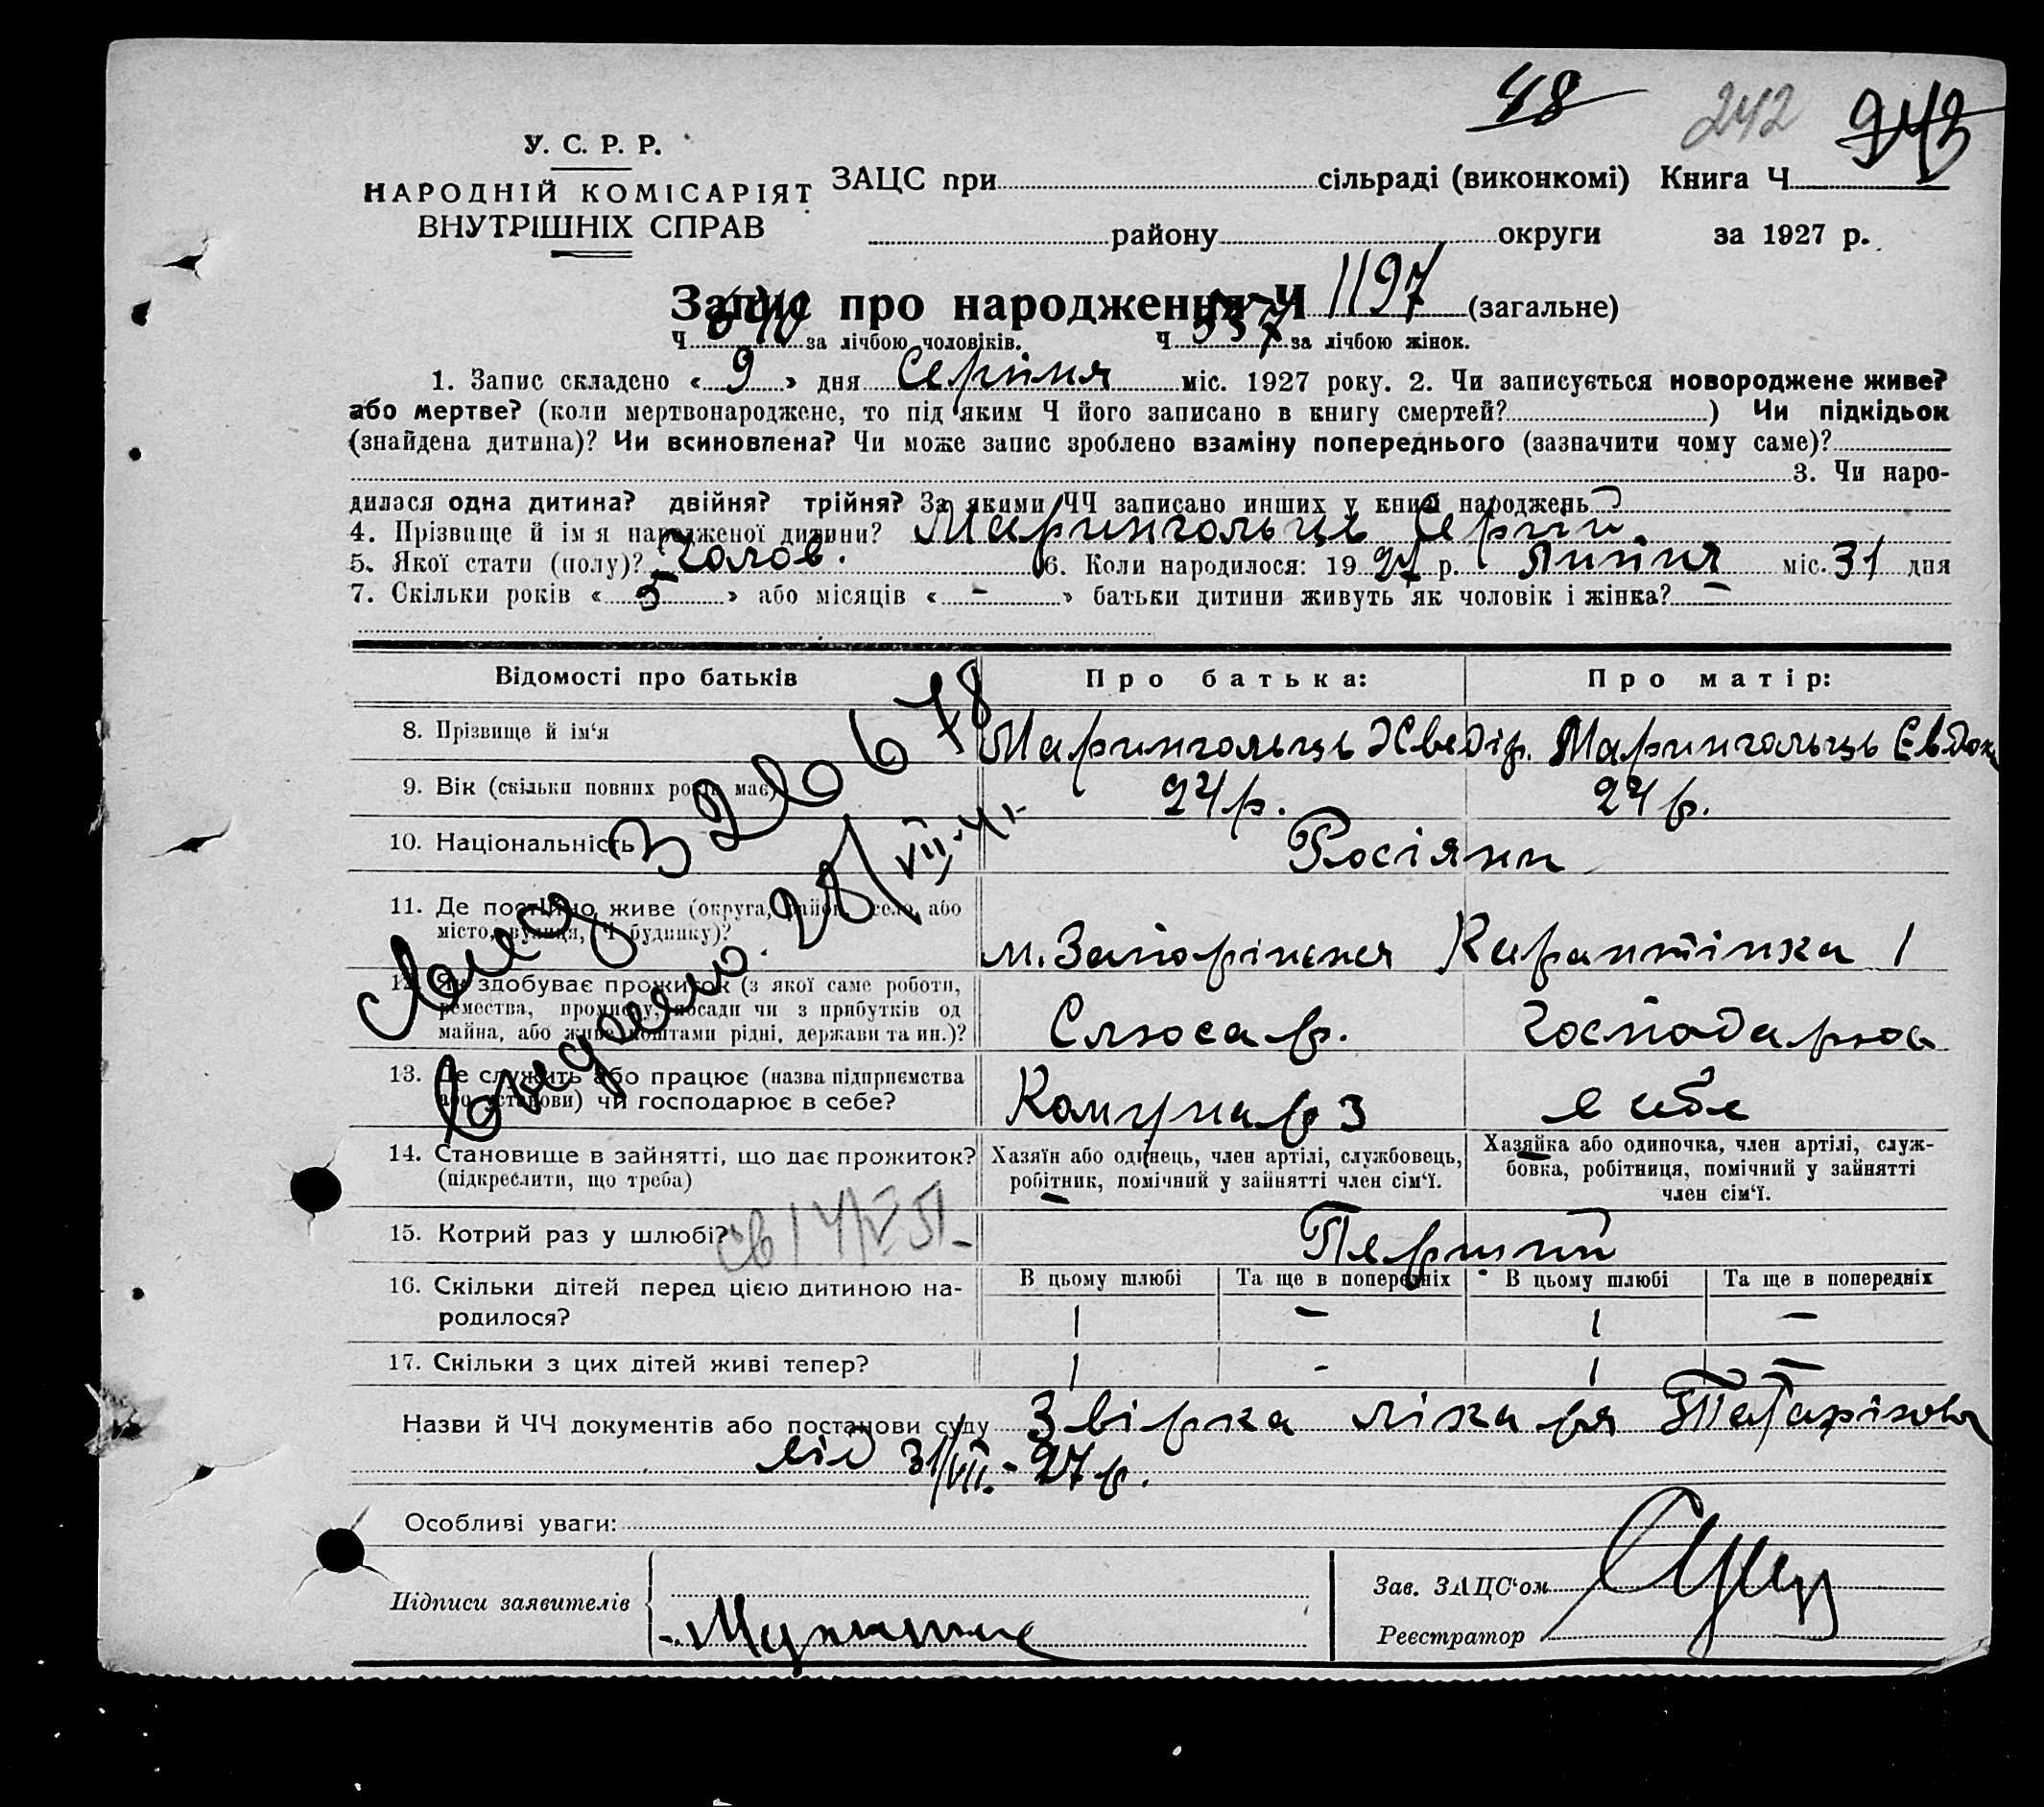 48 242 243
У. С. Р. Р.
НАРОДНІЙ КОМІСАРІЯТ
ВНУТРІШНІХ СПРАВ
ЗАЦС при сільраді (виконкомі) Книга Ч
району округи за 1927 р.
Запис про народження Ч 1197 (загальне)
Ч 640 за лічбою чоловіків. Ч 557 за лічбою жінок.
1. Запис складено « 9 » дня Серпня міс. 1927 року. 2. Чи записується новороджене живе?
або мертве? (коли мертвонароджене, то під яким Ч його записано в книгу смертей? ) Чи підкідьок
(знайдена дитина)? Чи всиновлена? Чи може запис зроблено взаміну попереднього (зазначити чому саме)?
3. Чи наро-
дилася одна дитина? двійня? трійня? За якими ЧЧ записано инших у книзі народжень?
4. Прізвище й ім я народженої дитини? Марингольць Сергій
5. Якої стати (полу)? Чолов. 6. Коли народилося: 19 27 р. Липня міс. 31 дня
7. Скільки років « 5 » або місяців « - » батьки дитини живуть як чоловік і жінка? —
Відомості про батьків Про батька: Про матір:
8. Прізвище й ім‘я Марингольць Хведір. Марингольць Євдок
9. Вік (скільки повних років має) 24 р. 24 р.
10. Національність Росіяни
11. Де постійно живе (округа, район, село, або
місто, вулиця, Ч будинку)? м. Запоріжжя Карантінка 1
12. Як здобуває прожиток (з якої саме роботи,
ремества, промислу, посади чи з прибутків од
майна, або живе коштами рідні, держави та ин.)? Слюсар. Господарює
13. Де служить або працює (назва підприємства
або установи) чи господарює в себе? Комунар З в себе
14. Становище в зайнятті, що дає прожиток?
(підкреслити, що треба)
Хазяїн або одінець, член артілі, службовець,
робітник, помічний у зайнятті член сім‘ї.
Хазяйка або одиночка, член артілі, служ-
бовка, робітниця, помічний у зайнятті
член сім‘ї.
15. Котрий раз у шлюбі? Перший
16. Скільки дітей перед цією дитиною на-
родилося?
В цьому шлюбі Та ще в попередніх В цьому шлюбі Та ще в попередніх
1 — 1 —
17. Скільки з цих дітей живі тепер? 1 - 1 —
Назви й ЧЧ документів або постанови суду Звірка лікаря
від 31/VII.-27 р.
Особливі уваги:
Підписи заявителів
Зав. ЗАЦС‘ом
Реєстратор
320678
28/VII-41